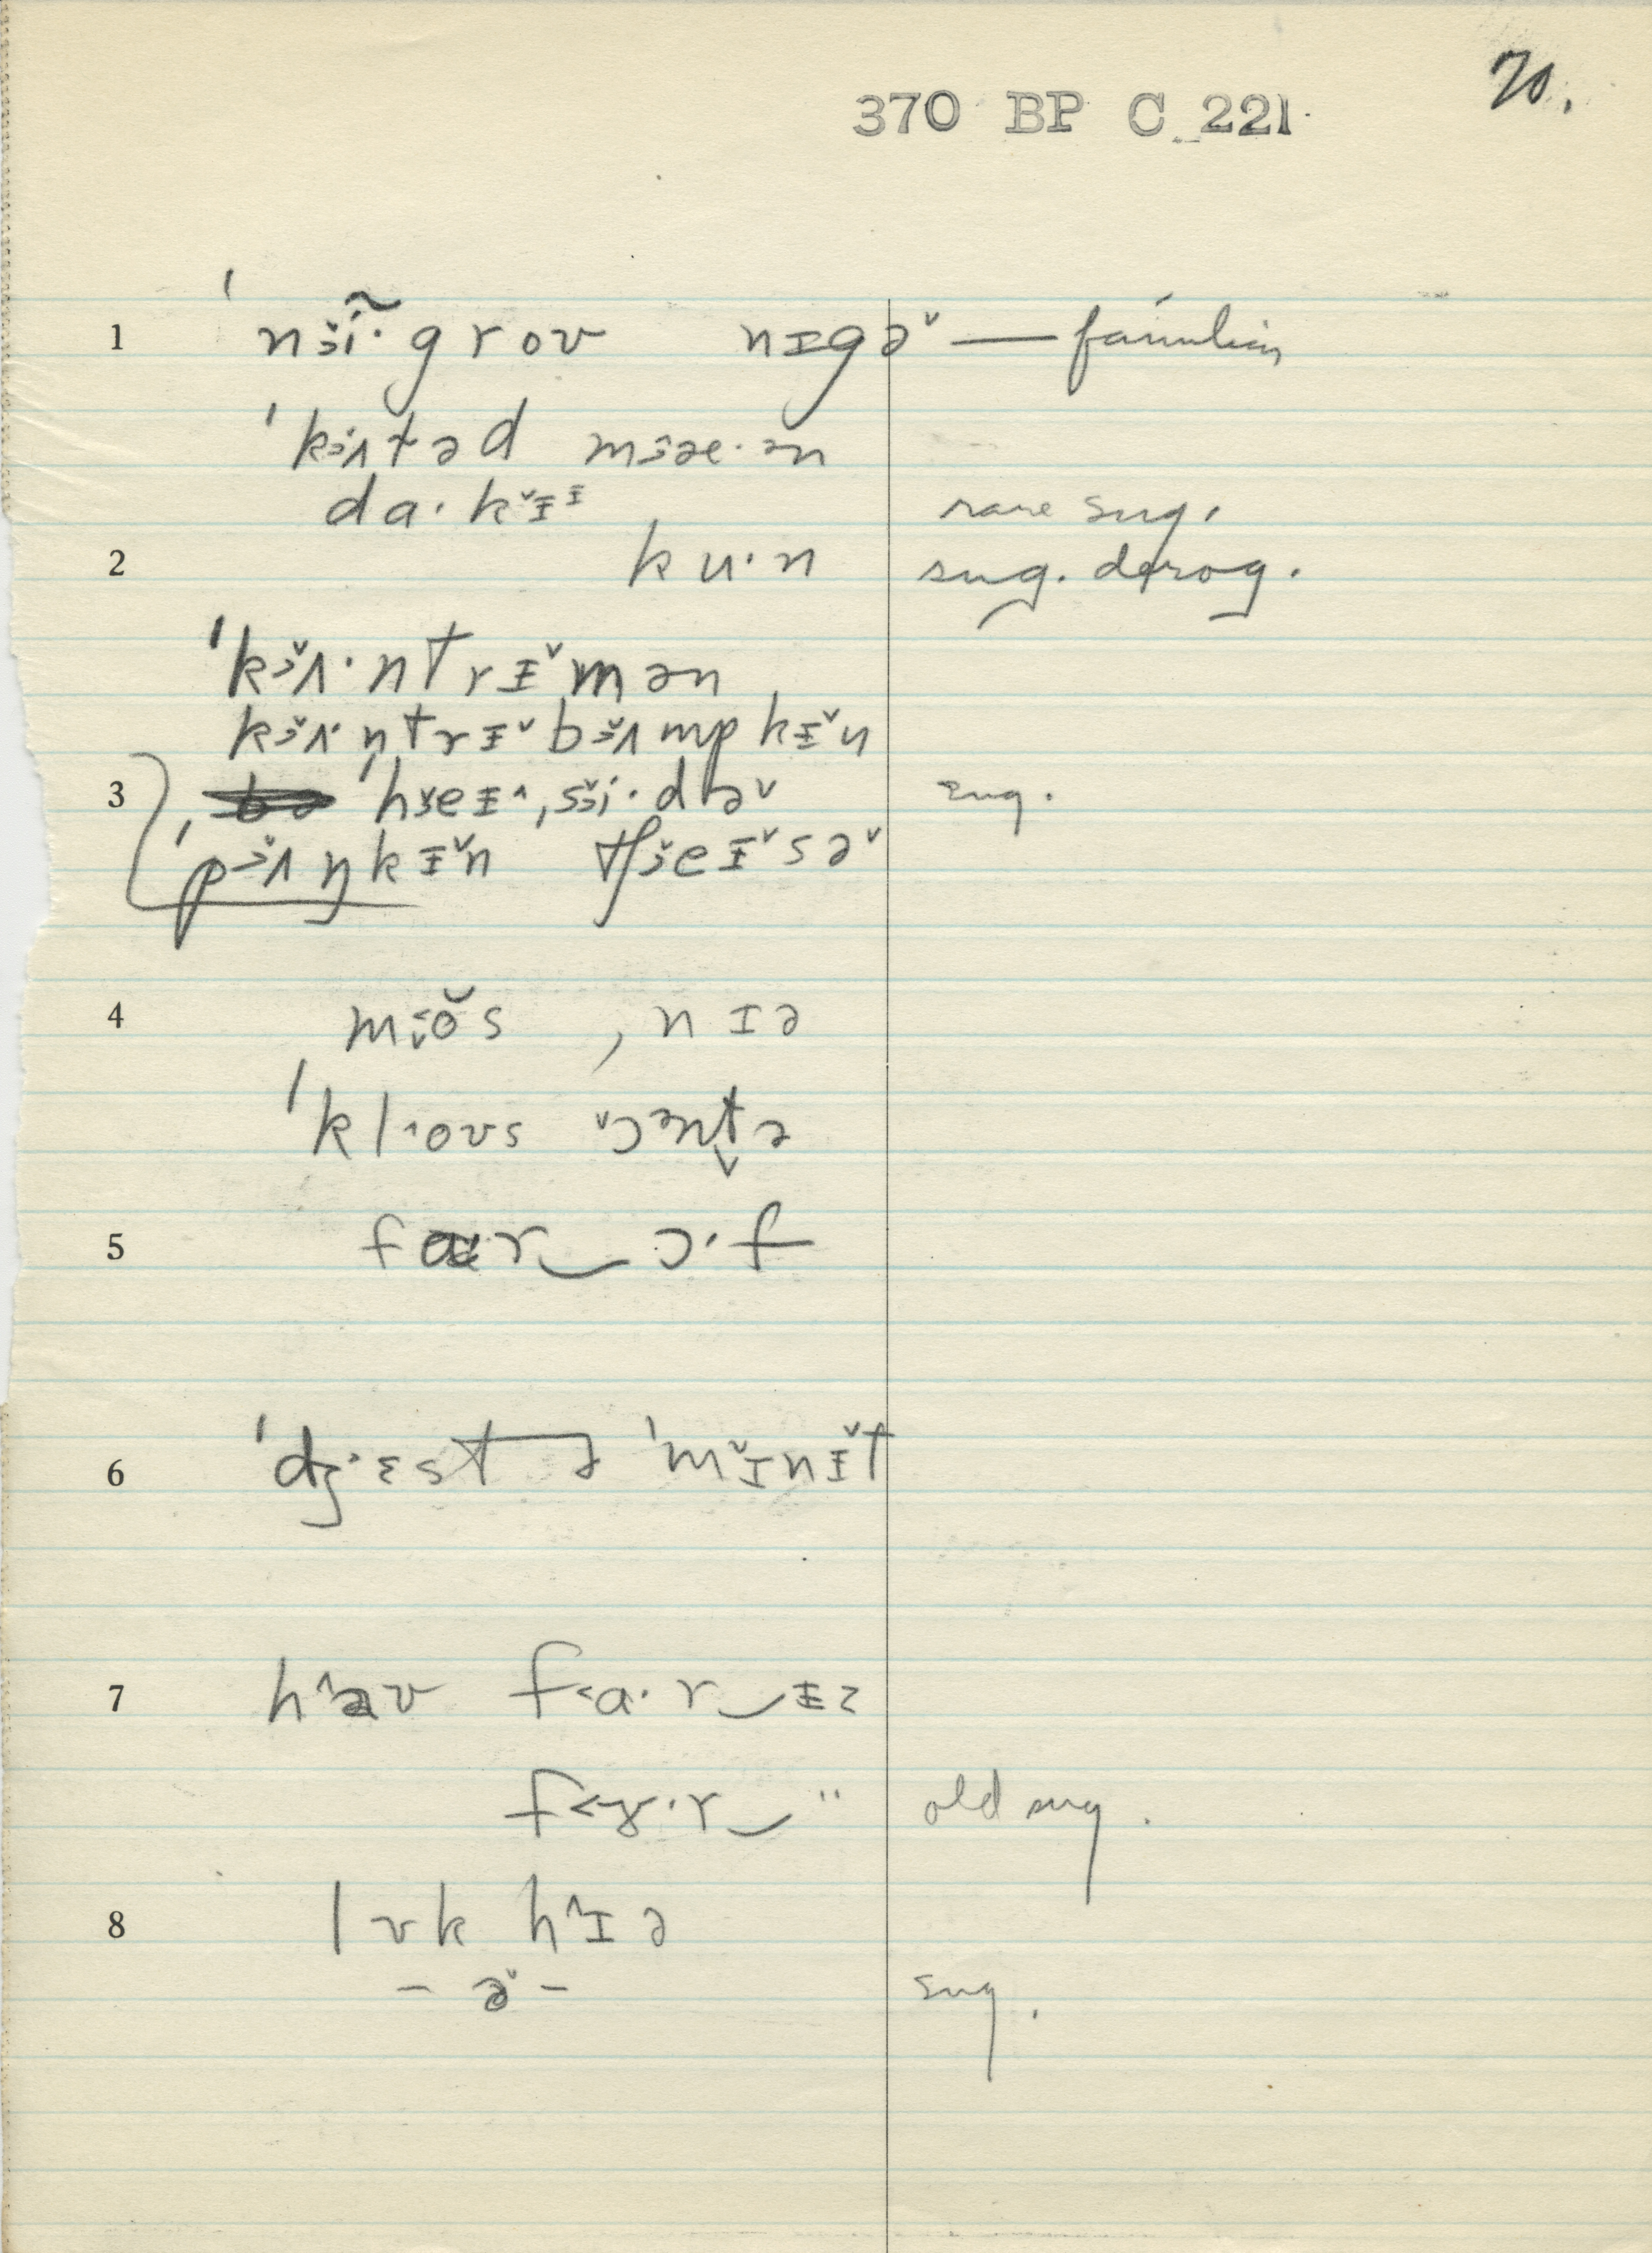 70.
370 BP C 221
1 ˈnɜĩ·groʊ nɪgə˅ — familiar
ˈkɜʌtəd mɜæ·ən
da·kɪ˅ᵻ rare sug.
2 ku·n sug. derog.
ˈkɜʌ·ntrᵻ˅mən
kɜʌ·ntrᵻ˅bɜʌmpkᵻ˅n
3 ˈhɜeᵻ^ˌsɜi·də˅ sug.
ˈpɜʌŋkᵻ˅n tʃɜeᵻ˅sə˅
4 m<o˅s , nɪə
ˈkl^oʊs ˅ɔəntə
5 fɑ·r‿ɔ·f
6 ˈdʒ^ɛst ə ˈmɪ˅nᵻ˅t
7 h^aʊ f<ɑ·r‿ᵻz
f<ɤ·r‿" old sug.
8 lʊk h^ɪə
– ə˅ – sug.